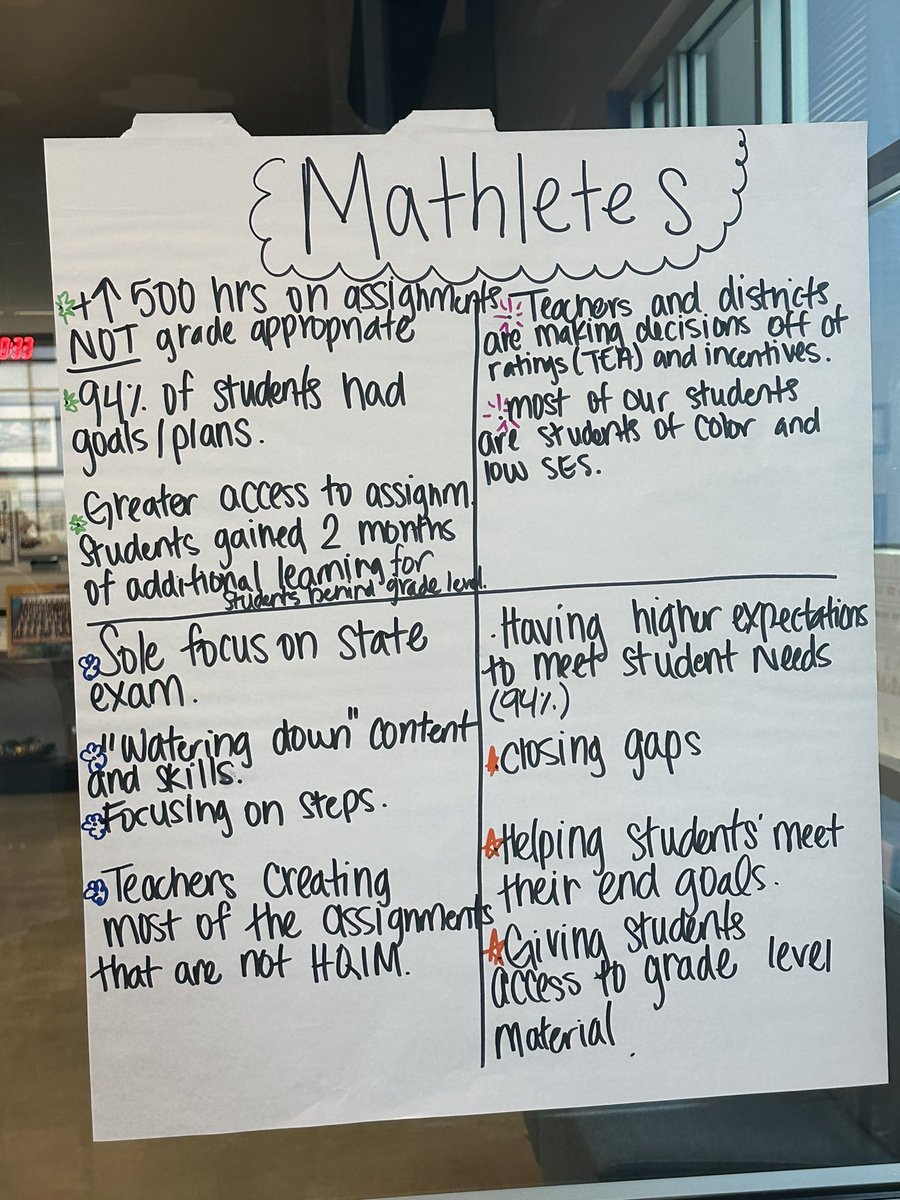 Mathletes
+↑ 500 hrs on assignments
NOT grade appropriate
94% of students had
goals/plans.
Greater access to assignm.
Students gained 2 months
of additional learning for
students behind grade level.
Teachers and districts
are making decisions off of
ratings (TEA) and incentives.
most of our students
are students of color and
low SES.
Sole focus on state
exam.
"Watering down" content
and skills.
Focusing on steps.
Teachers creating
most of the assignments
that are not HQIM.
. Having higher expectations
to meet student needs
(94%)
Closing gaps
Helping students' meet
their end goals.
Giving students
access to grade level
material.
0:33